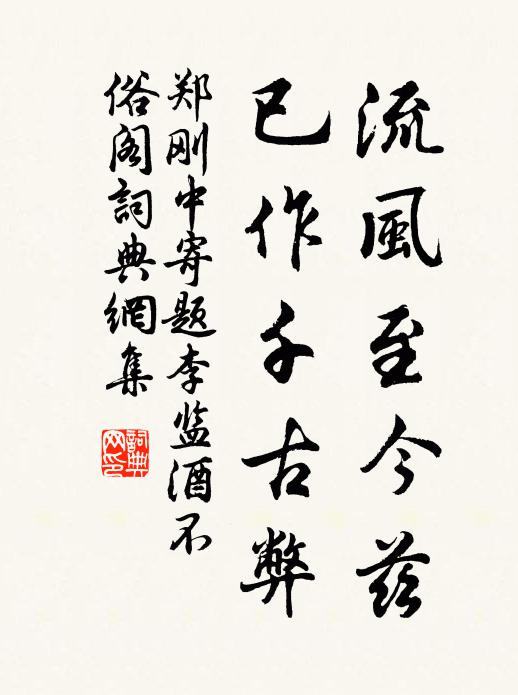 流風至今兹
已作千古弊
郑刚中寄题李监酒不
俗阁詞典網集
詞典网印